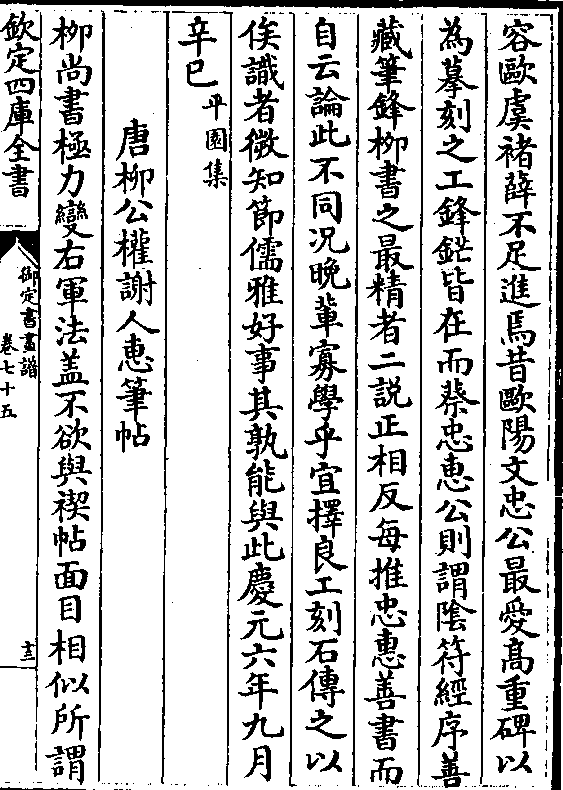 容歐虞褚薛不足進焉昔歐陽文忠公最愛高重碑以
為摹刻之工鋒鋩皆在而蔡忠惠公則謂陰符經序善
藏筆鋒柳書之最精者二説正相反每推忠惠善書而
自云論此不同況晚輩寡學乎宜擇良工刻石傳之以
俟識者微知節儒雅好事其孰能與此慶元六年九月
辛巳平園集
唐柳公權謝人惠筆帖
柳尚書極力變右軍法盖不欲與禊帖面目相似所謂
欽定四庫全書
御定書畫譜
卷七十五
十三